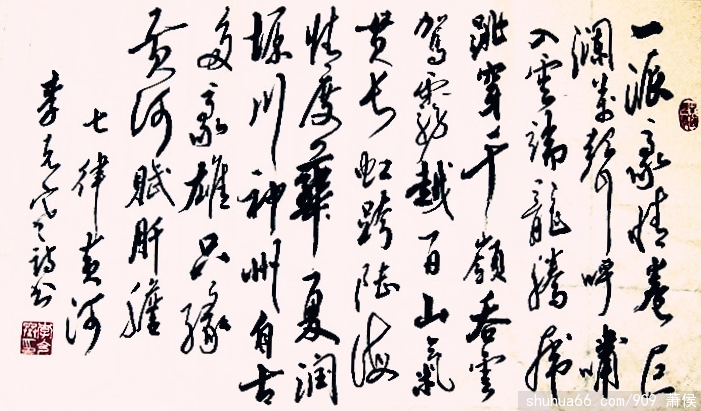 一派豪情卷巨
澜呼啸
入雲端龍騰虎
跃穿千嶺吞雲
驾霧越百山氣
贯长虹跨陆海
情度華夏润
塬川神州自古
多豪雄只缘
黄河赋肝膽
七律黄河
李克之诗书
shuhua66.com/909_蕭侯